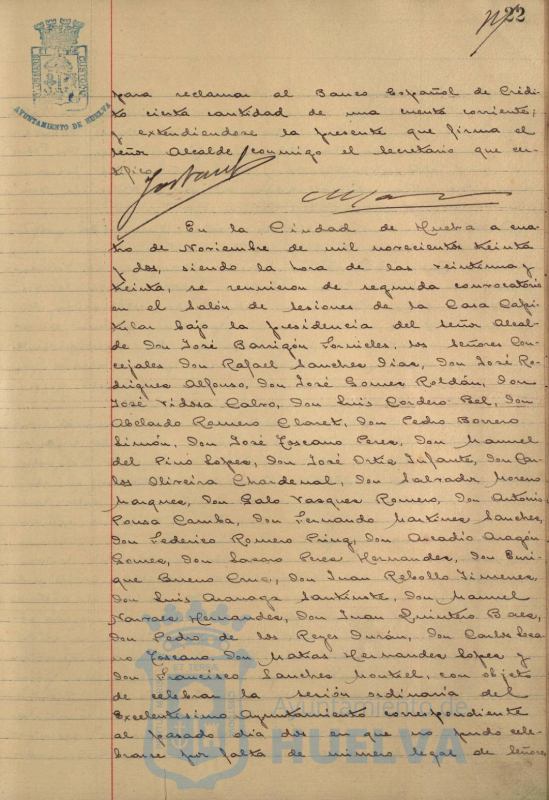 22
AYUNTAMIENTO DE HUELVA
para reclamar al Banco Español de Crédi-
to cierta cantidad de una cuenta corriente;
y extendiendose la presente que firma el
señor Alcalde conmigo el Secretario que cer-
tifico.
En la Ciudad de Huelva a cua-
tro de Noviembre de mil novecientos treinta
y dos, siendo la hora de las veintiuna y
treinta, se reunieron de segunda convocatoria
en el Salón de sesiones de la Casa Capi-
tular bajo la presidencia del señor Alcal-
de Don José Barrigón Fornieles, los señores Con-
cejales Don Rafael Sanchez Diaz, Don José Ro-
driguez Alfonso, Don José Gomez Roldán, Don
José Vidosa Calvo, Don Luis Cordero Bel, Don
Abelardo Romero Claret, Don Pedro Borrero
Limón, Don José Toscano Perez, Don Manuel
del Pino Lopez, Don José Ortiz Infante, Don Car-
los Oliveira Chardenal, Don Salvador Moreno
Marquez, Don Galo Vazquez Romero, Don Antonio
Pousa Camba, Don Fernando Martinez Sanchez,
Don Federico Romero Don Arcadio Aragón
Gomez, Don Lazaro Perez Hernandez, Don Enri-
que Bueno Cruz, Don Juan Rebollo Jimenez,
Don Luis Don Manuel
Narvaez Hernandez, Don Juan Quintero Baez,
Don Pedro de los Reyes Durán, Don Carlos Sea-
no Toscano, Don Matias Hernandez Lopez y
Don Francisco Sanchez Montiel, con objeto
de celebrar la sesión ordinaria del
Excelentisimo Ayuntamiento correspondiente
al pasado dia dos en que no pudo cele-
brarse por falta de número legal de señores
Ayuntamiento de
HUELVA